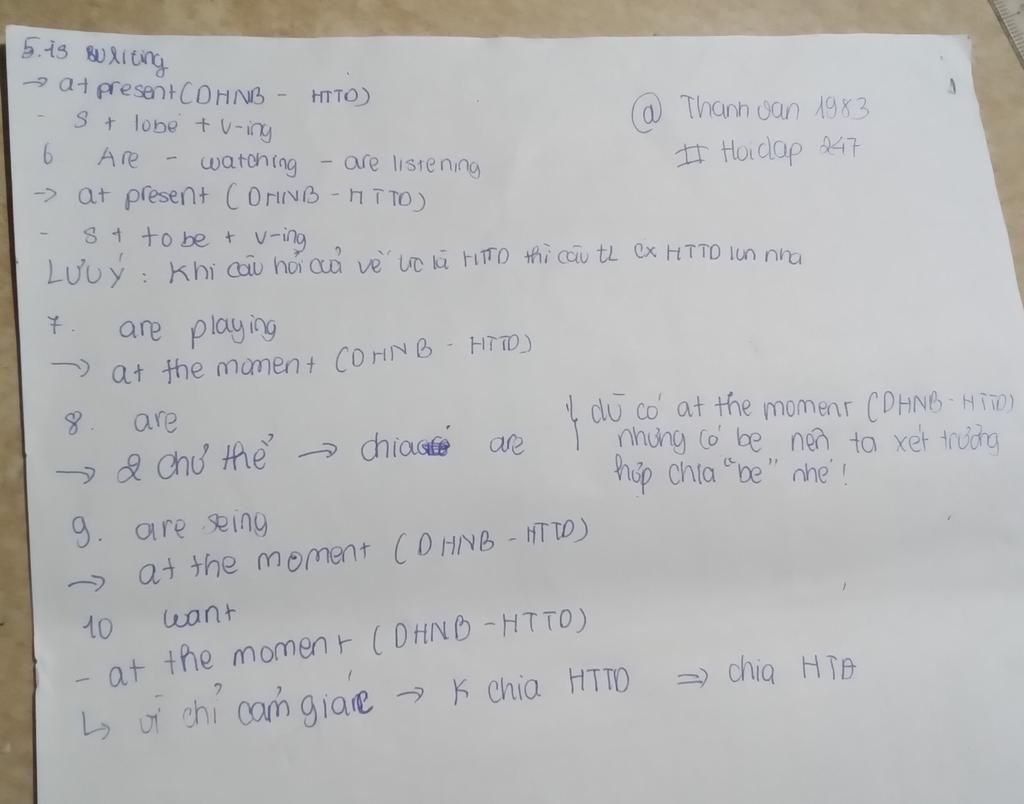 5. is writing
→ at present (DHNB - HTTD)
- S + tobe + V-ing
@ Thanh van 1983
# Hoidap 247
6 Are - watching - are listening
→ at present (DHNB - HTTD)
- S + to be + V-ing
LƯU Ý : Khi câu hỏi cả về là HTTD thì câu tL HTTD lun nha
7. are playing
→ at the moment (DHNB - HTTD)
8. are
→ 2 chủ thể → chia are
dù có at the moment (DHNB - HTTD)
nhưng có be nên ta xét trường
hợp chia "be" nhé !
9. are seing
→ at the moment (DHNB - HTTD)
10 want
- at the moment (DHNB - HTTD)
↳ vì chỉ cảm giác → K chia HTTD ⇒ chia HTĐ